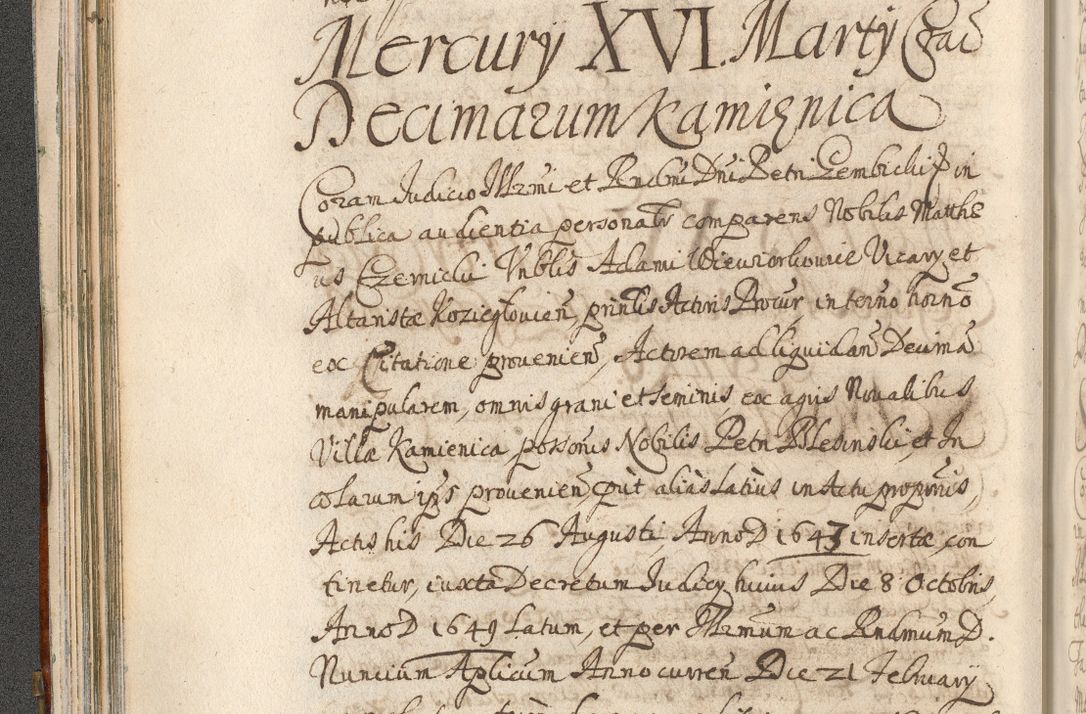 Mercury XVI. Marty Cṡae
Decimarum Kamięnica
Coram Judicio Illrmi et Rndmi Dni Petri Gembicki in
publica audientia personalr comparens Nobilis Matthę
us Czernicki Vnblis Adami Wieuiorkouic Vicary et
Altaristæ Koziegłouien, prinlis Actoris Procur, in terno horno
ex Citatione prouenien, Actorem ad liquidan Decima
manipularem, omnis grani et seminis, ex agris Noualibus
Villæ Kamienica possonis Nobilis Petri Bledinski, et In
colarum ips prouenien, put alias Latius in Actu propónis,
Actis his Die 26 Augusti, Anno D 1643 insertæ, con
tinetur, iuxta Decretum Judicy huius Die 8 Octobris,
Anno D 1649 Latum, et per Illrmum ac Rndmum D.
Nuncium Aplicum Anno curren Die 21 February